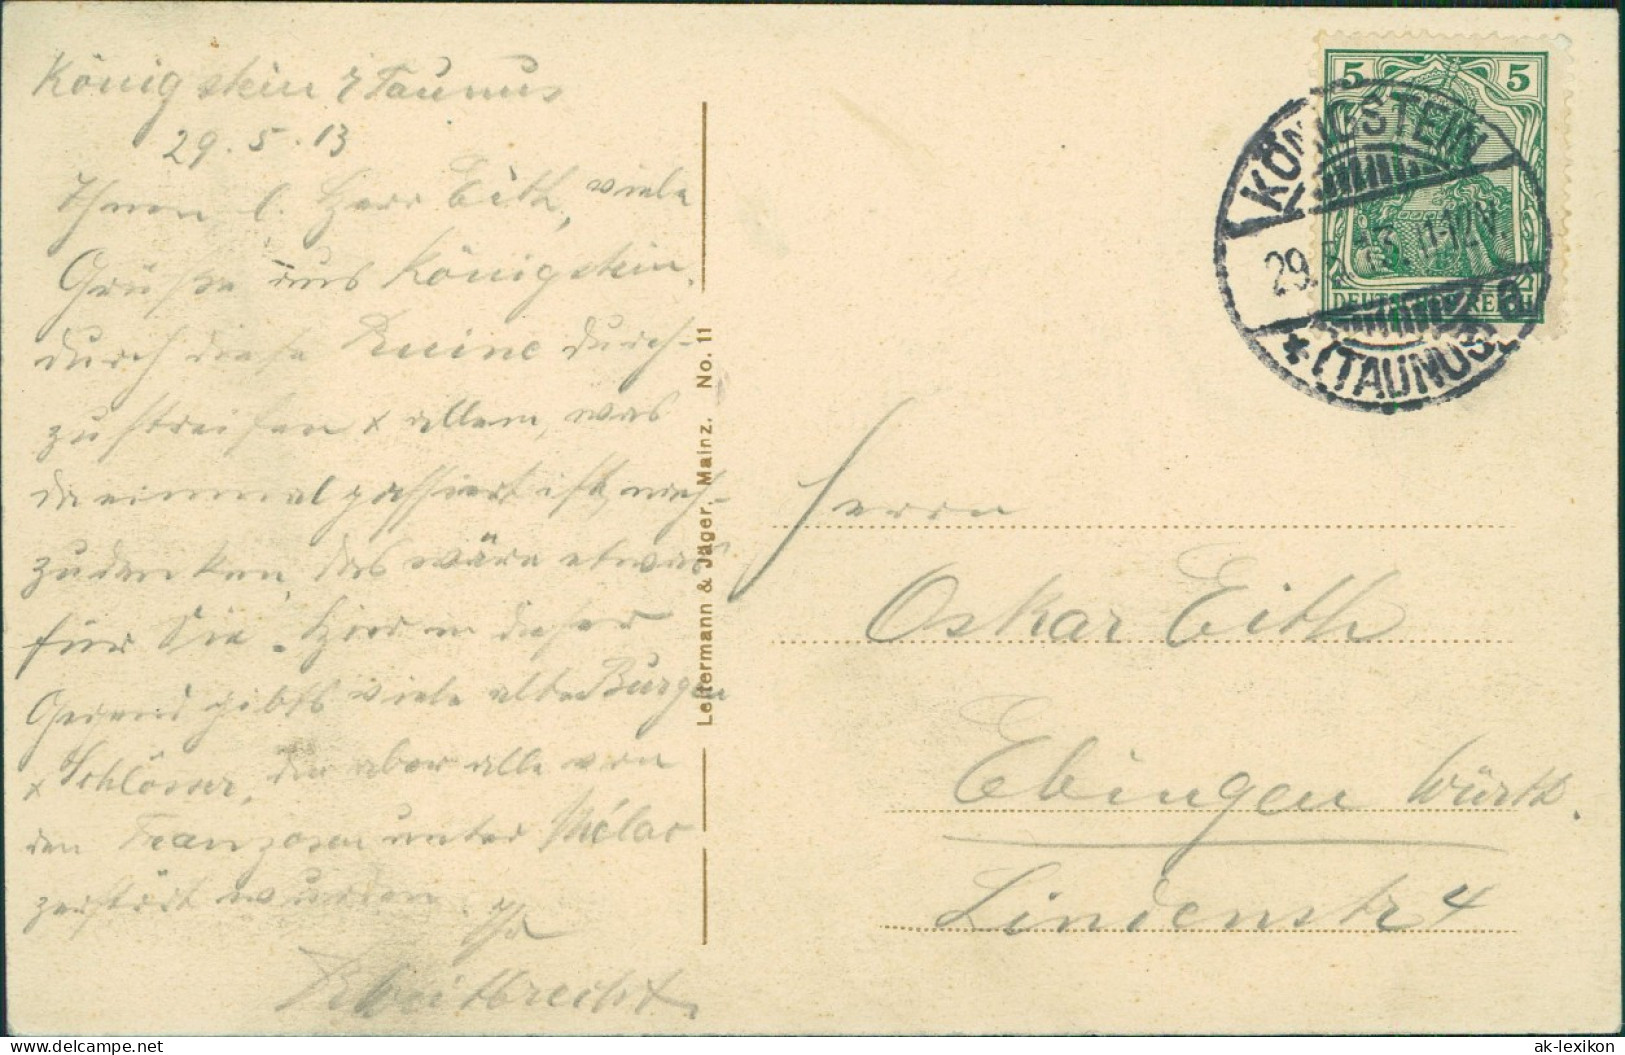 Königstein i/Taunus
29. 5. 13
Ihnen l. Herr Eith, viele
Grüße aus Königstein.
durch diese Ruine durch-
zustreifen x allem, was
da einmal passiert ist, nach-
zudenken, das wäre etwas
für Sie. Hier in dieser
Gegend gibts viele alte Burgen
x Schlösser, die aber alle von
den Franzosen unter Mélac
zerstört wurden. Ihr
Weitbrecht.
Leitermann & Jäger, Mainz. No. 11
5 5
DEUTSCHES REICH
KÖNIGSTEIN
29. 5. 13. 11-12V.
* (TAUNUS) a
Herrn
Oskar Eith
Ebingen Württ.
Lindenstr 4
www.delcampe.net
ak-lexikon